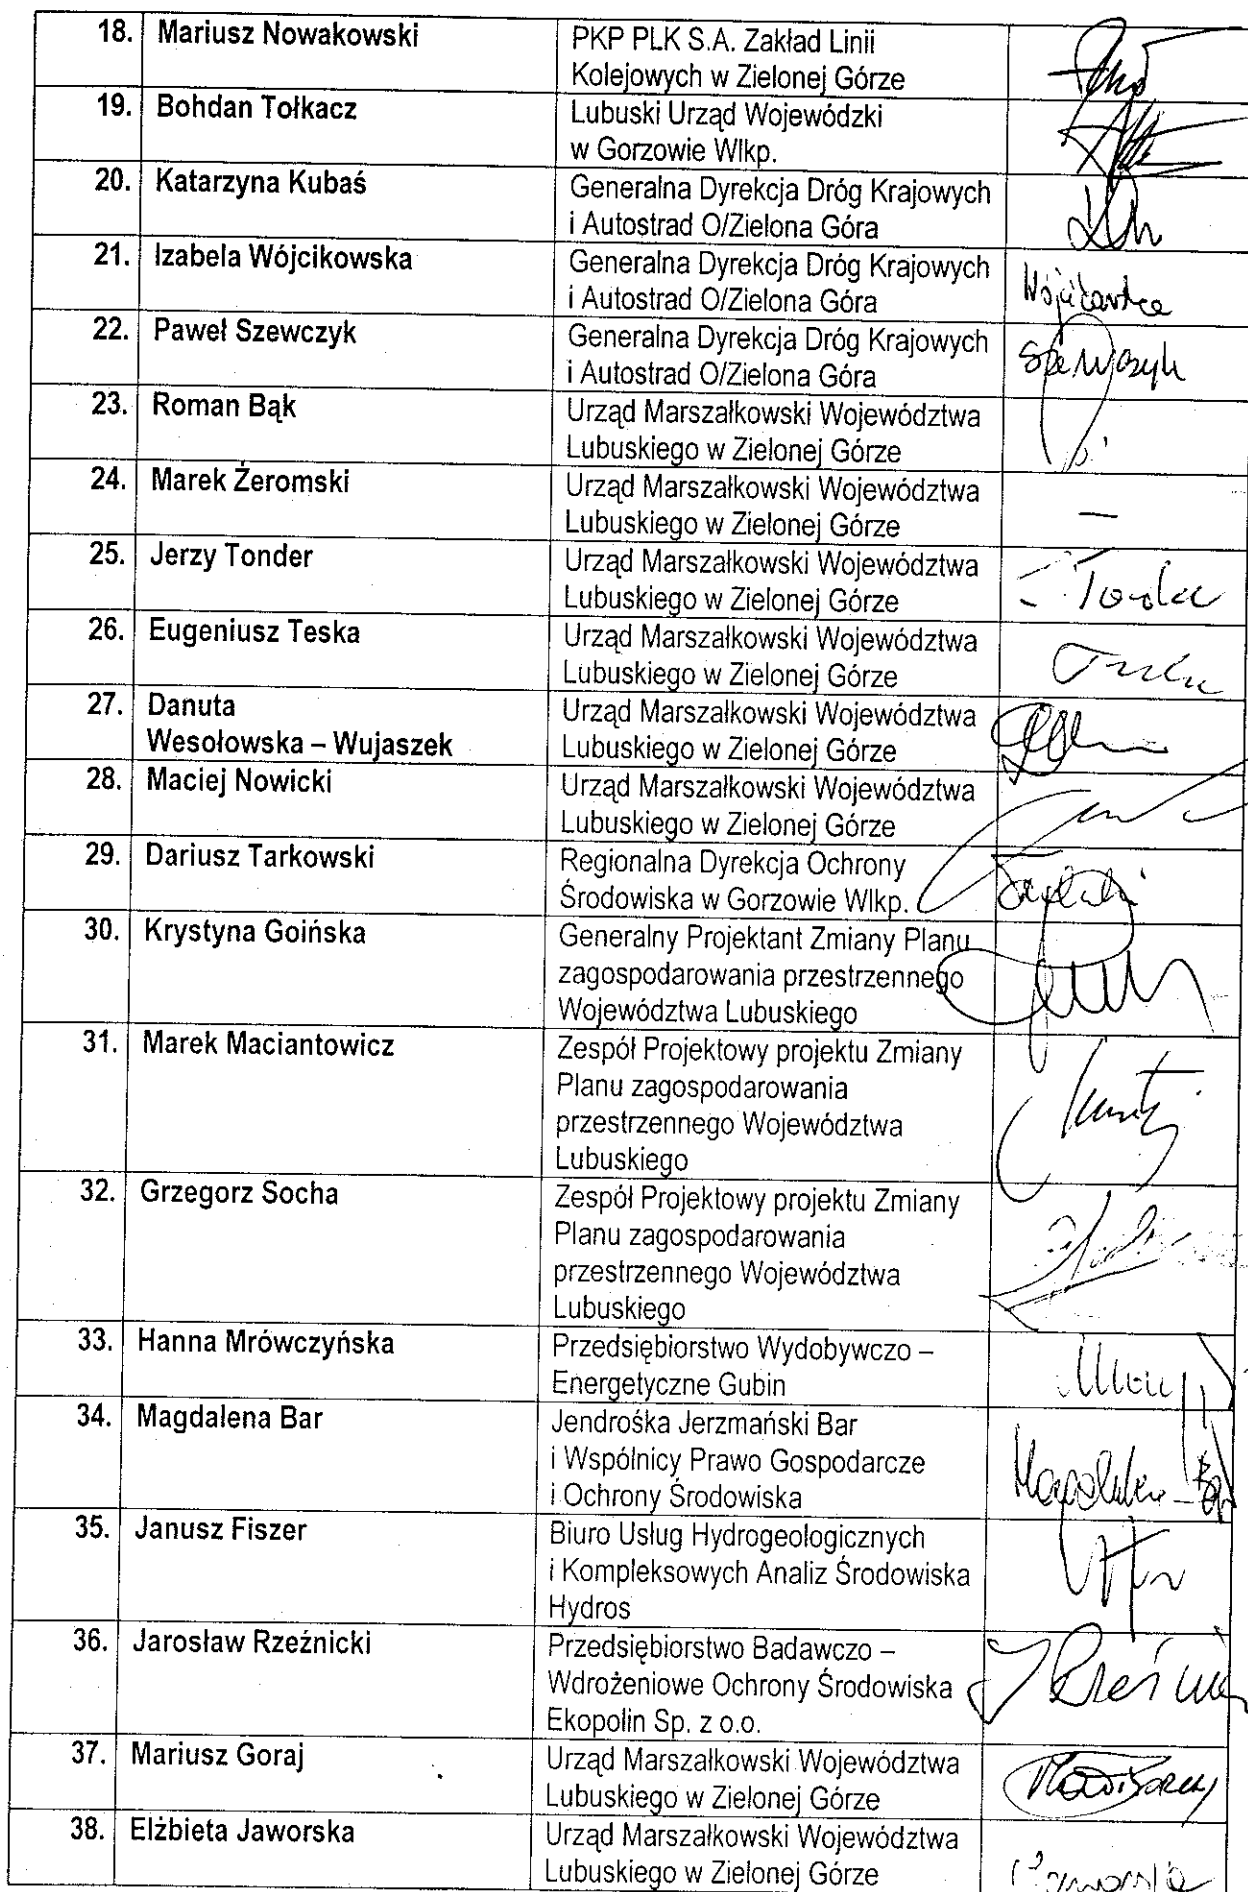 18. Mariusz Nowakowski PKP PLK S.A. Zakład Linii
Kolejowych w Zielonej Górze
19. Bohdan Tołkacz Lubuski Urząd Wojewódzki
w Gorzowie Wlkp.
20. Katarzyna Kubaś Generalna Dyrekcja Dróg Krajowych
i Autostrad O/Zielona Góra
21. Izabela Wójcikowska Generalna Dyrekcja Dróg Krajowych
i Autostrad O/Zielona Góra
22. Paweł Szewczyk Generalna Dyrekcja Dróg Krajowych
i Autostrad O/Zielona Góra
23. Roman Bąk Urząd Marszałkowski Województwa
Lubuskiego w Zielonej Górze
24. Marek Żeromski Urząd Marszałkowski Województwa
Lubuskiego w Zielonej Górze –
25. Jerzy Tonder Urząd Marszałkowski Województwa
Lubuskiego w Zielonej Górze
26. Eugeniusz Teska Urząd Marszałkowski Województwa
Lubuskiego w Zielonej Górze
27. Danuta Urząd Marszałkowski Województwa
Wesołowska – Wujaszek Lubuskiego w Zielonej Górze
28. Maciej Nowicki Urząd Marszałkowski Województwa
Lubuskiego w Zielonej Górze
29. Dariusz Tarkowski Regionalna Dyrekcja Ochrony
Środowiska w Gorzowie Wlkp.
30. Krystyna Goińska Generalny Projektant Zmiany Planu
zagospodarowania przestrzennego
Województwa Lubuskiego
31. Marek Maciantowicz Zespół Projektowy projektu Zmiany
Planu zagospodarowania
przestrzennego Województwa
Lubuskiego
32. Grzegorz Socha Zespół Projektowy projektu Zmiany
Planu zagospodarowania
przestrzennego Województwa
Lubuskiego
33. Hanna Mrówczyńska Przedsiębiorstwo Wydobywczo –
Energetyczne Gubin
34. Magdalena Bar Jendrośka Jerzmański Bar
i Wspólnicy Prawo Gospodarcze
i Ochrony Środowiska
35. Janusz Fiszer Biuro Usług Hydrogeologicznych
i Kompleksowych Analiz Środowiska
Hydros
36. Jarosław Rzeźnicki Przedsiębiorstwo Badawczo –
Wdrożeniowe Ochrony Środowiska
Ekopolin Sp. z o.o.
37. Mariusz Goraj Urząd Marszałkowski Województwa
Lubuskiego w Zielonej Górze
38. Elżbieta Jaworska Urząd Marszałkowski Województwa
Lubuskiego w Zielonej Górze